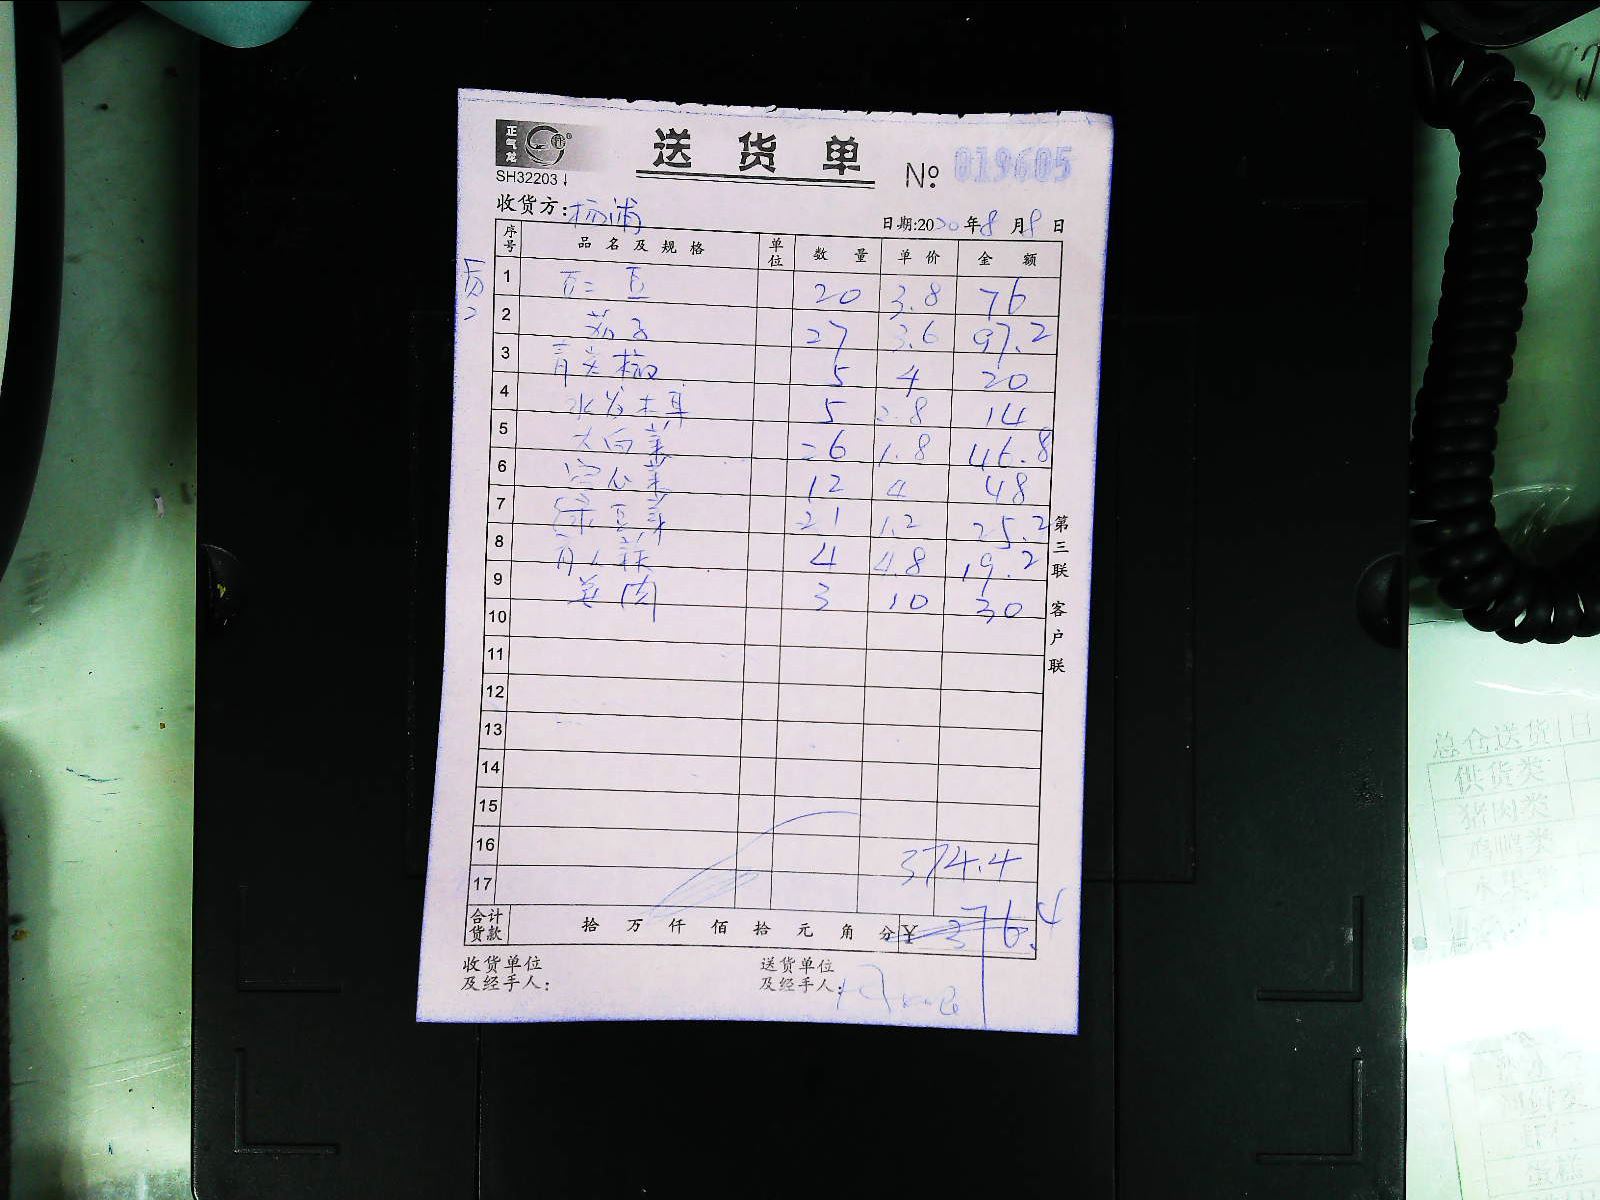 正气龙
送货单
SH32203
№ 019605
收货方: 杨浦
日期:2020年8月8日
序号 品名及规格 单位 数量 单价 金额
1 豆 20 3.8 76
2 茄子 27 3.6 97.2
3 青尖椒 5 4 20
4 水发木耳 5 2.8 14
5 大白菜 26 1.8 46.8
6 空心菜 12 4 48
7 绿豆芽 21 1.2 25.2
8 4 4.8 19.2
9 3 10 30
10
11
12
13
14
15
16 374.4
17
合计货款 拾 万 仟 佰 拾 元 角 分 ¥ 376.4
收货单位及经手人:
送货单位及经手人:
第三联 客户联
总仓送货1日
供货类
猪肉类
鸡鸭类
蛋糕